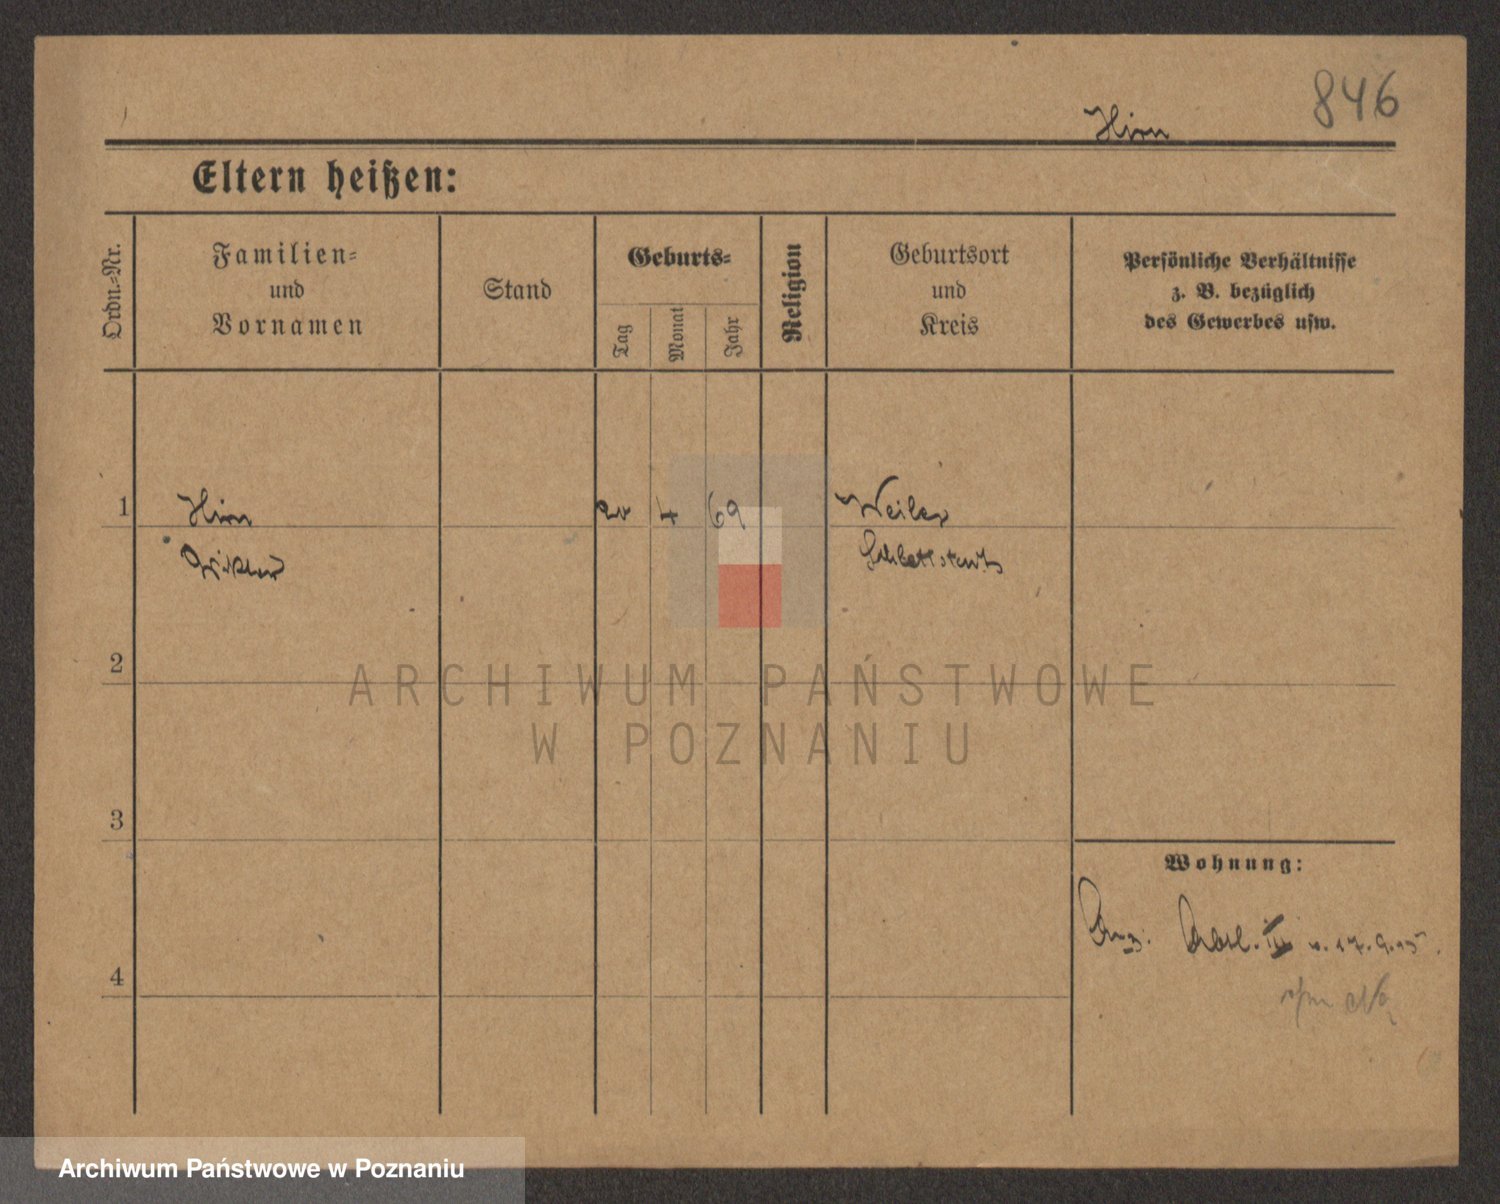 846
Hirn
Eltern heißen:
Ordn.-Nr.
Familien-
und
Vornamen
Stand
Geburts-
Tag
Monat
Jahr
Religion
Geburtsort
und
Kreis
Persönliche Verhältnisse
z. B. bezüglich
des Gewerbes usw.
1
Hirn
4
69
Weiler
Viktor
Schlettstadt
2
ARCHIWUM PAŃSTWOWE
W POZNANIU
3
Wohnung:
Abtl. III v. 17.9.15.
4
Archiwum Państwowe w Poznaniu